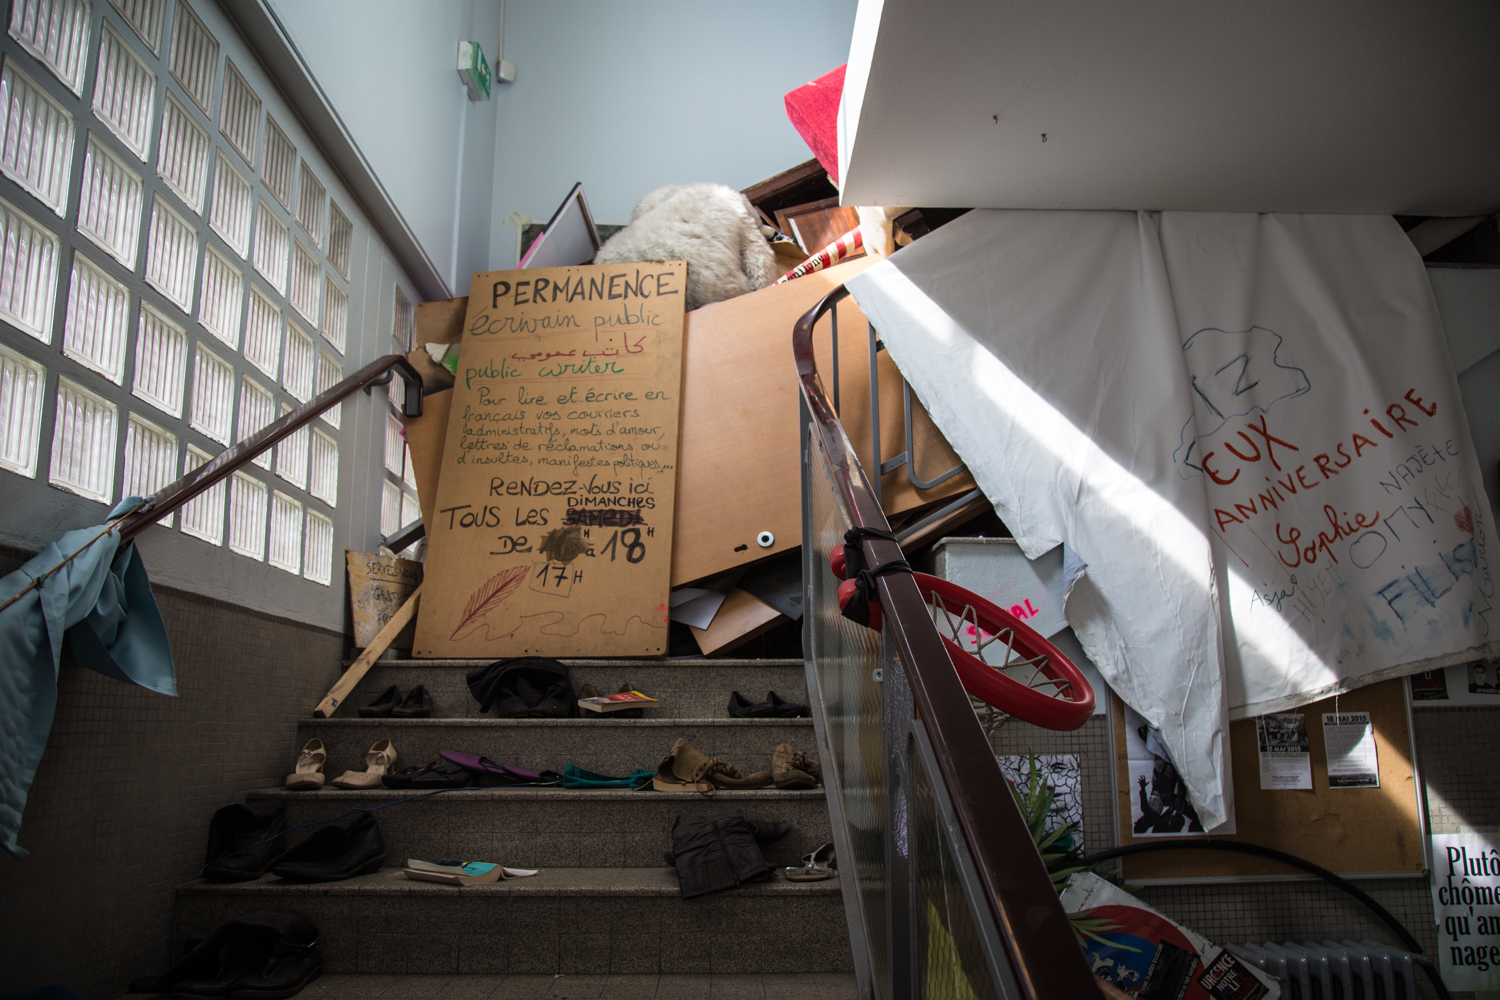 PERMANENCE
écrivain public
كاتب عمومي
public writer
Pour lire et écrire en
français vos courriers
administratifs, mots d'amour,
lettres de réclamations ou
d'insultes, manifestes politiques...
RENDEZ-VOUS ici
DIMANCHES
TOUS LES SAMEDIS
DE 16H à 18H
17H
EUX
ANNIVERSAIRE
Sophie
NAJÈTE
Asja
FILIS
SOCIAL
18 MAI 2015
18 MAI 2015
URGENCE
NOTRE
Plutô
chôme
qu'an
nage